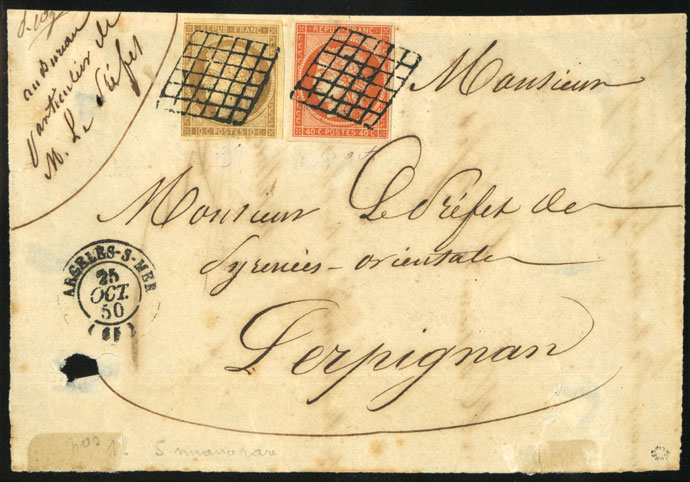 au Bureau
Particulier de
M. Le Préfet
REPUB. FRANC.
10 C. POSTES 10 C.
REPUB. FRANC.
40 C. POSTES 40 C.
Monsieur
Monsieur Le Préfet de
Pyrénées-orientale
Perpignan
ARGELES-S-MER
25
OCT.
50
(65)